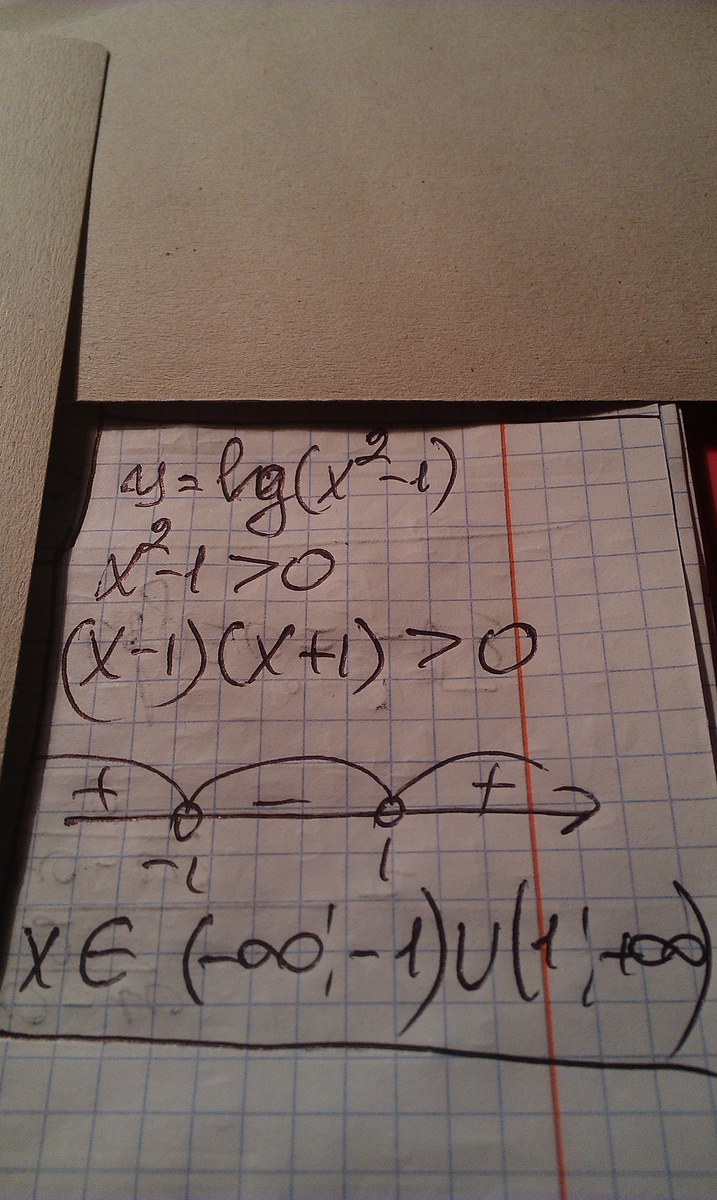 y = lg(x²-1)
x²-1 > 0
(x-1)(x+1) > 0
+ - +
-1 1
x ∈ (-∞; -1) ∪ (1; +∞)